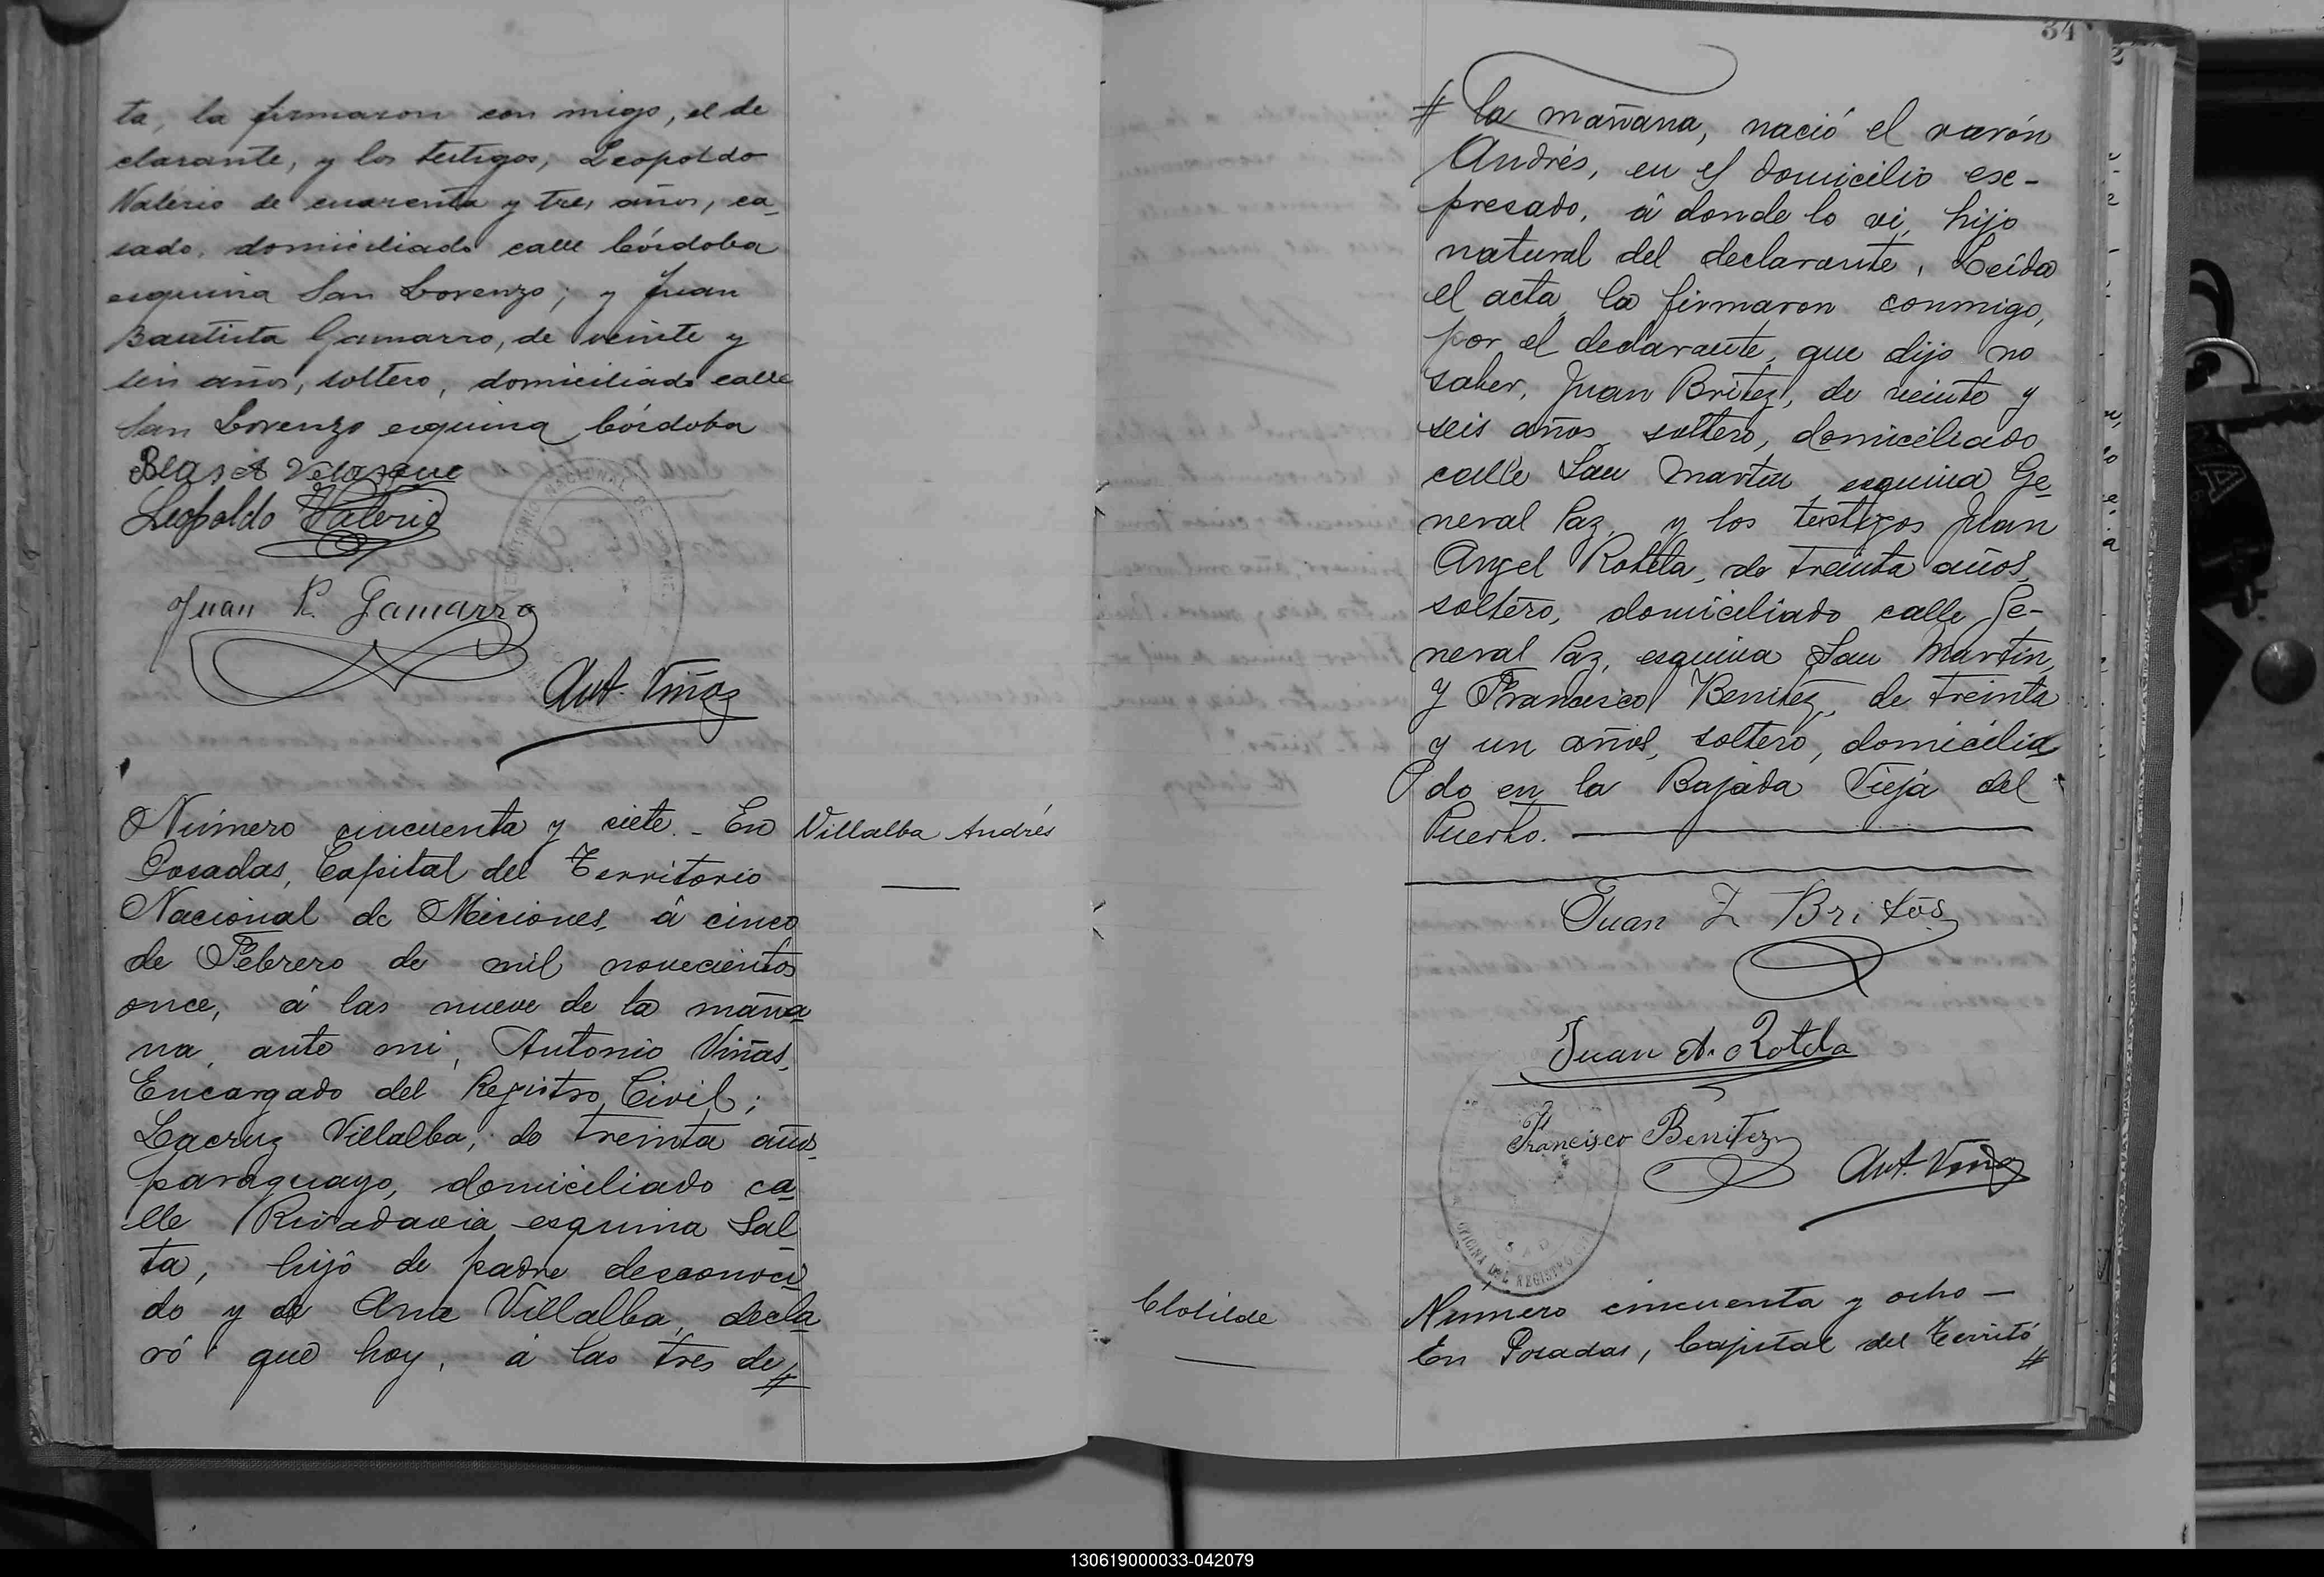 ta, la firmaron con migo, el de
clarante, y los testigos, Leopoldo
Valerio de cuarenta y tres años, ca-
sado, domiciliado calle Córdoba
esquina San Lorenzo; y Juan
Bautista Gamarro, de veinte y
seis años, soltero, domiciliado calle
San Lorenzo esquina Córdoba
Blas A Velasque
Leopoldo Valerio
Juan B. Gamarra
Ant. Viñas
Número cincuenta y siete. - En
Posadas, Capital del Territorio
Nacional de Misiones, á cinco
de Febrero de mil novecientos
once, á las nueve de la maña-
na, ante mi, Antonio Viñas,
Encargado del Registro Civil;
Lacruz Villalba, de treinta años,
paraguayo, domiciliado ca-
lle Rivadavia esquina Sal-
ta, hijo de padre desconoci-
do y de Ana Villalba, decla-
ró que hoy, á las tres de #
Villalba Andrés
34
# la mañana, nació el varón
Andrés, en el domicilio exe-
presado, á donde lo vi, hijo
natural del declarante. Leída
el acta, la firmaron conmigo,
por el declarante, que dijo no
saber, Juan Britez, de veinte y
seis años, soltero, domiciliado
calle San Martin esquina Ge-
neral Paz, y los testigos Juan
Angel Rotela, de treinta años,
soltero, domiciliado calle Ge-
neral Paz, esquina San Martin,
y Francisco Benitez, de treinta
y un años, soltero, domicilia
do en la Bajada Vieja del
Puerto.
Juan Z Britos
Juan A. Rotela
Francisco Benitez
Ant. Viñas
OFICINA DEL REGISTRO CIVIL
Clotilde
Número cincuenta y ocho -
En Posadas, Capital del Territó #
130619000033-042079